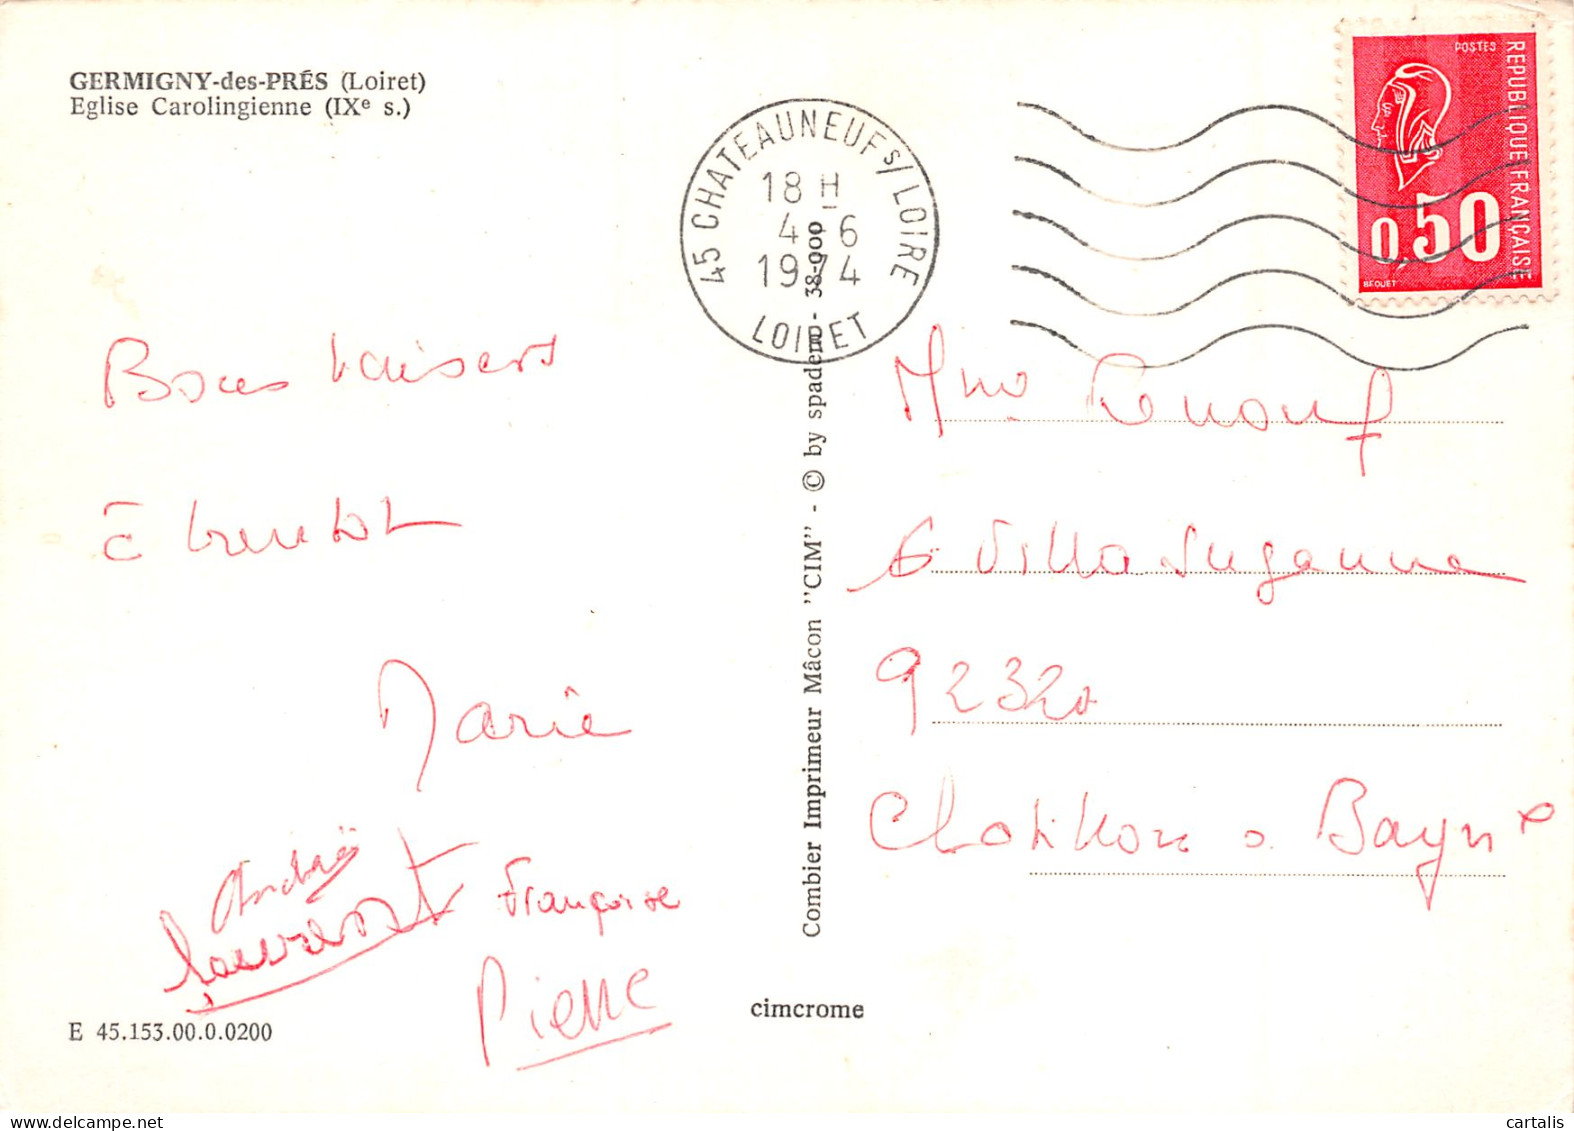 GERMIGNY-des-PRÉS (Loiret)
Eglise Carolingienne (IXe s.)
45 CHATEAUNEUF s/ LOIRE
18 H
4-6
1974
LOIRET
POSTES
REPUBLIQUE FRANÇAISE
0,50
BEQUET
Bons baisers
à bientôt
Marie
Laurent
Françoise
Pierre
Mme Renouf
6 Villa Suzanne
92320
Chatillon s. Bagneux
Combier Imprimeur Mâcon "CIM" - © by spadem - 38-000
cimcrome
E 45.153.00.0.0200
cartalis
delcampe.net